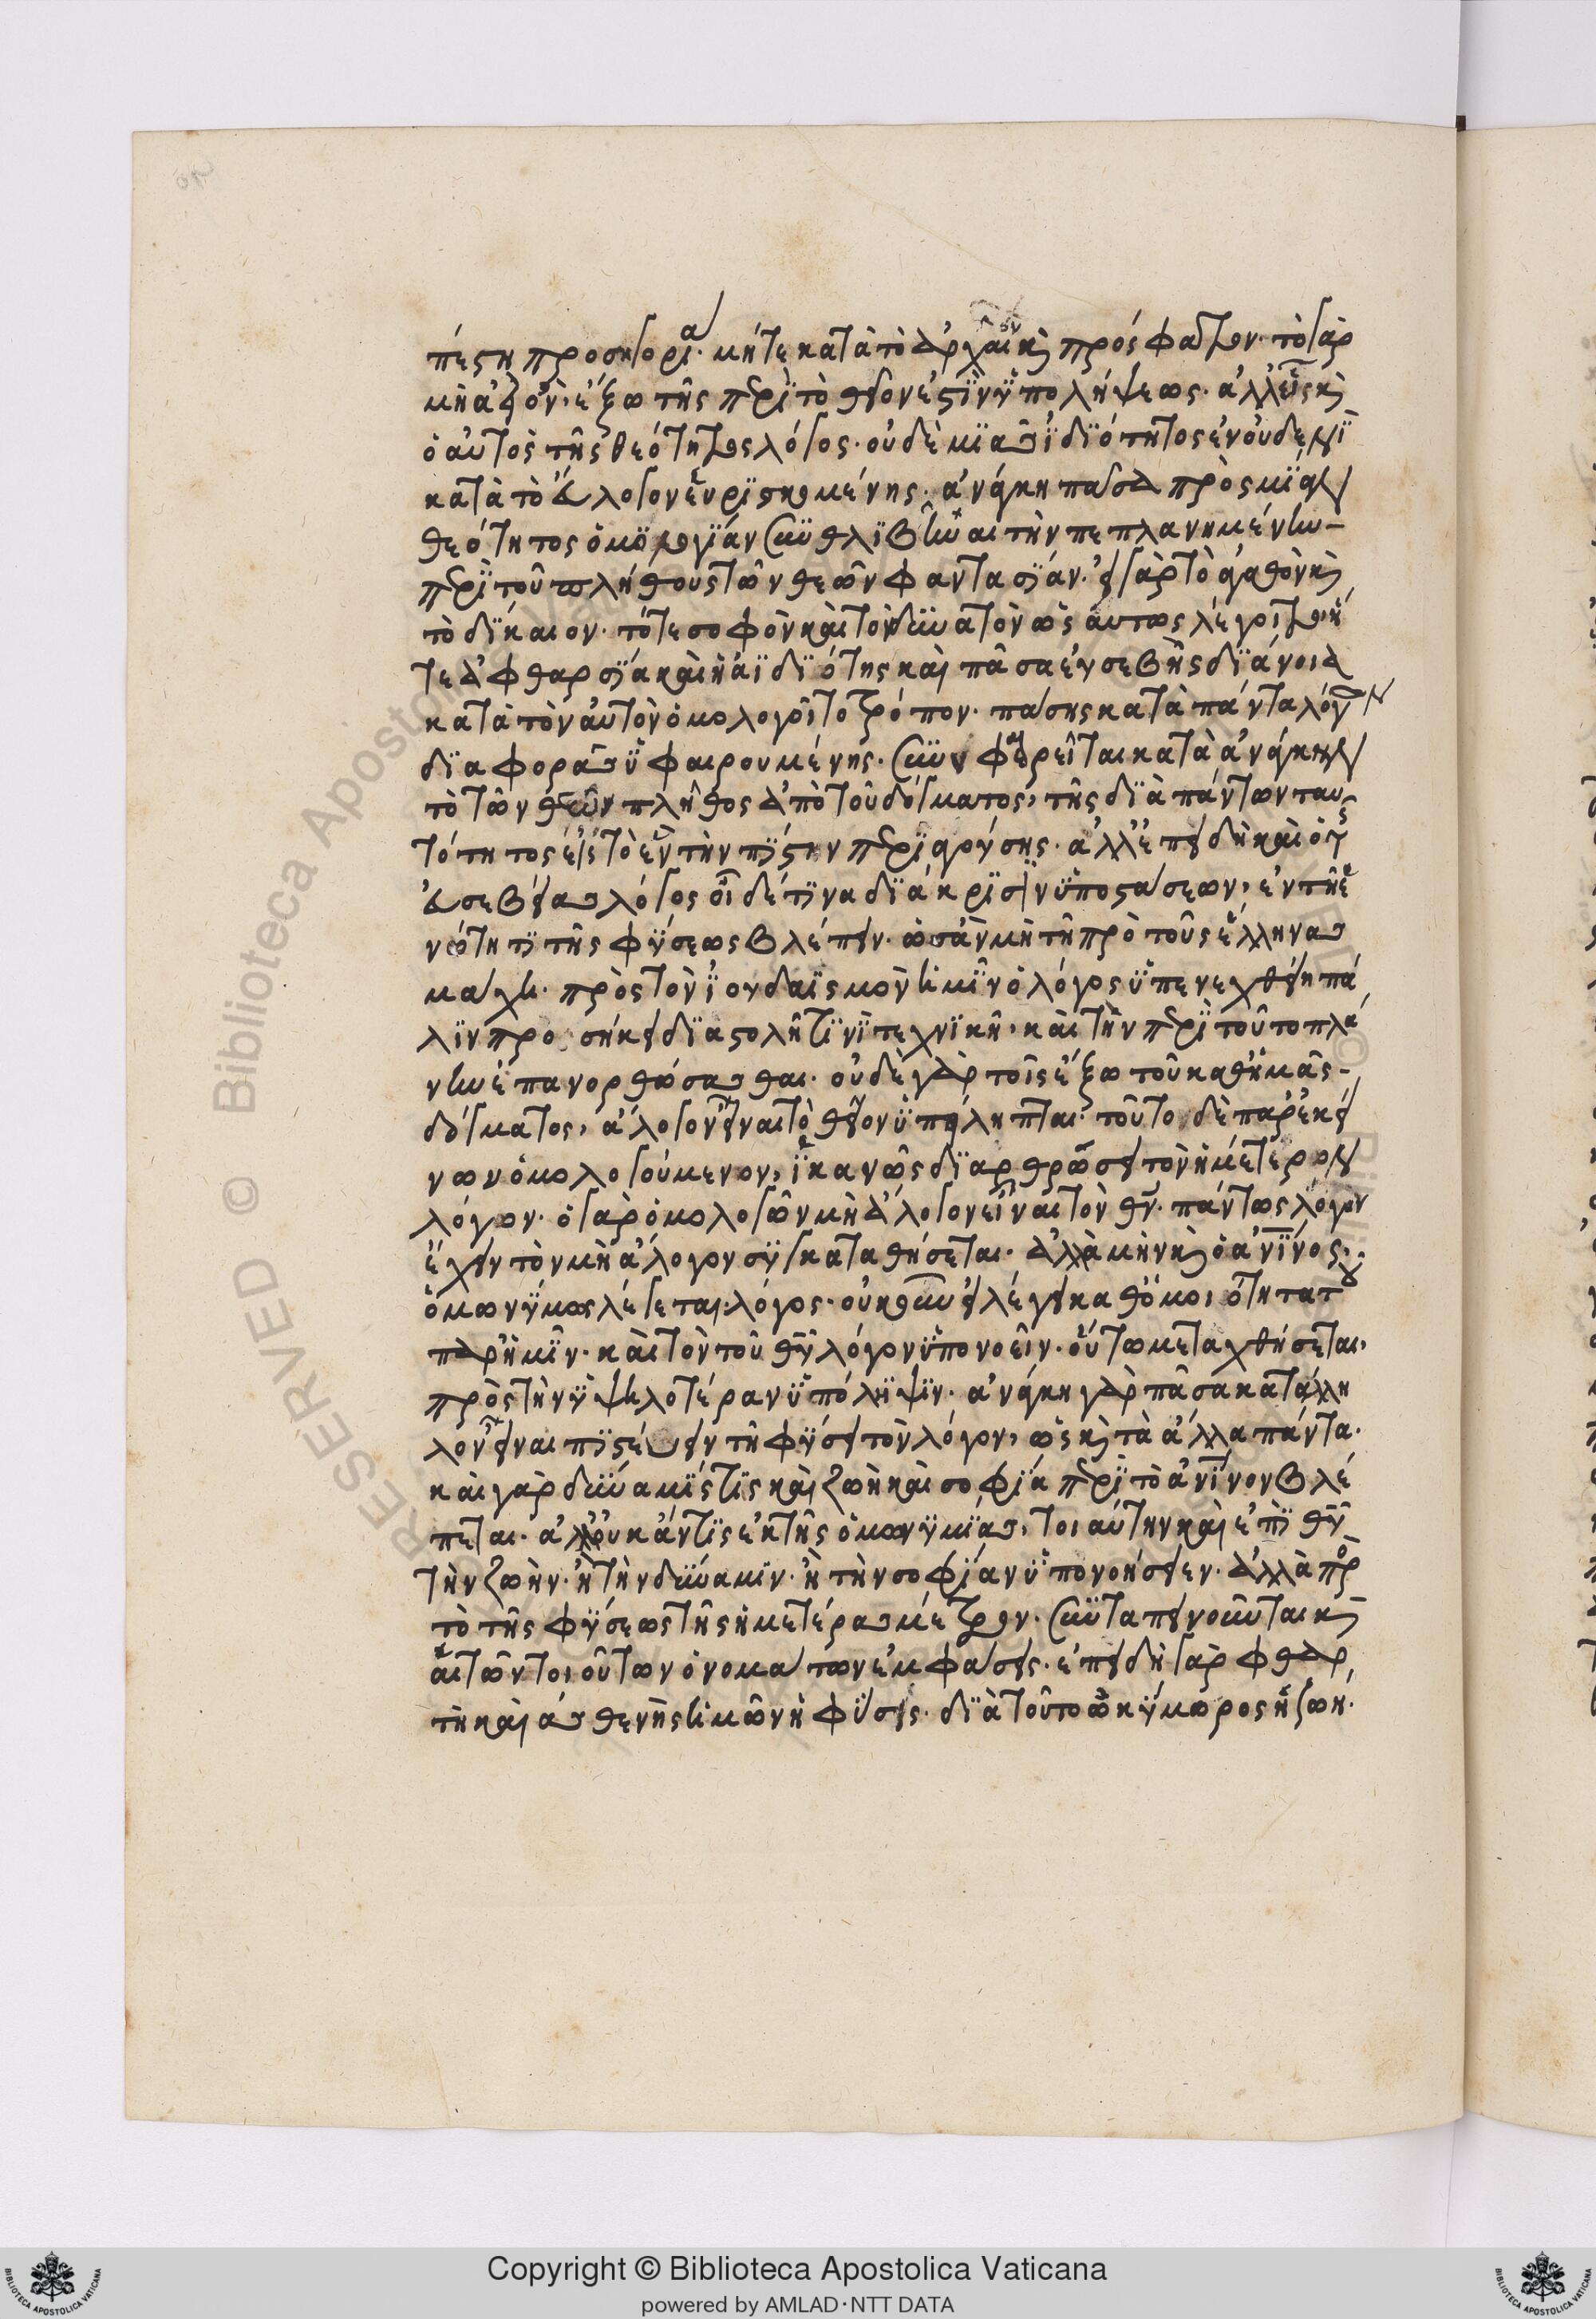 πέςη προσηγορία· μήτε κατὰ τὸ ἀρχαῖον κ̀ πρόσφατον· τὸ γὰρ
μὴ ἄξιον, ἔξω τῆς περὶ τὸ θεῖον ἐστὶν ὑπολήψεως· ἀλλ' εἷς κ̀
ὁ αὐτὸς τῆς θεότητος λόγος· οὐδὲ μιᾶς ἰδιότητος ἐν οὐδενὶ
κατὰ τὸ εὔλογον εὑρισκομένης· ἀνάγκη πᾶσα πρὸς μίαν
θεότητος ὁμολογίαν συνθλιβῆναι τὴν πεπλανημένην
περὶ τοῦ πλήθους τῶν θεῶν φαντασίαν· εἰ γὰρ τὸ ἀγαθὸν κ̀
τὸ δίκαιον· τότε σοφὸν καὶ τὸ δυνατὸν ὡσαύτως λέγοιτο· ἥ
τε ἀφθαρσία καὶ ἡ ἀϊδιότης καὶ πᾶσα εὐσεβὴς διάνοια
κατὰ τὸν αὐτὸν ὁμολογοῖτο τρόπον· πάσης κατὰ πάντα λόγον
διαφορᾶς ὑφαιρουμένης· συνυφαιρεῖται κατὰ ἀνάγκην
τὸ τῶν θεῶν πλῆθος ἀπὸ τοῦ δόγματος, τῆς διὰ πάντων ταυ
τότητος εἰς τὸ ἓν τὴν πίστιν περιαγούσης· ἀλλ' ἐπειδὴ καὶ ὁ τῆς
εὐσεβείας λόγος οἶδέ τινα διάκρισιν ὑποστάσεων, ἐν τῇ ἑ
νότητι τῆς φύσεως βλέπειν· ὡς ἂν μὴ τῇ πρὸς τοὺς ἕλληνας
μάχῃ· πρὸς τὸν ἰουδαϊσμὸν ἡμῖν ὁ λόγος ὑπενεχθείη πά
λιν προσήκει διαστολῇ τινὶ τεχνικῇ· καὶ τὴν περὶ τοῦτο πλά
νην ἐπανορθώσασθαι· οὐδὲ γὰρ τοῖς ἔξω τοῦ καθ' ἡμᾶς
δόγματος, ἄλογον εἶναι τὸ θεῖον ὑπείληπται· τοῦτο δὲ παρ' ἐκεί
νων ὁμολογούμενον, ἱκανῶς διαρθρώσει τὸν ἡμέτερον
λόγον· ὁ γὰρ ὁμολογῶν μὴ ἄλογον εἶναι τὸν θν̄· πάντως λόγον
ἔχειν τὸν μὴ ἄλογον συγκαταθήσεται· ἀλλὰ μὴν κ̀ ὁ ἀνι̅νος,
ὁμωνύμως λέγεται λόγος· οὐκοῦν εἰ λέγει καθ' ὁμοιότητα τοῦ
παρ' ἡμῖν· καὶ τὸν τοῦ θυ̅ λόγον ὑπονοεῖν· οὕτω μεταχθήσεται,
πρὸς τὴν ὑψηλοτέραν ὑπόληψιν· ἀνάγκη γὰρ πᾶσα κατάλλη
λον εἶναι πιστεύειν τῇ φύσει τὸν λόγον, ὡς κ̀ τὰ ἄλλα πάντα·
καὶ γὰρ δύναμίς τις καὶ ζωὴ καὶ σοφία περὶ τὸ ἀνι̅νον βλέ
πεται· ἀλλ' οὐκ ἄν τις ἐκ τῆς ὁμωνυμίας, τοιαύτην καὶ ἐπὶ θυ̅
τὴν ζωὴν· ἢ τὴν δύναμιν· ἢ τὴν σοφίαν ὑπονοήσειεν· ἀλλὰ πρὸς
τὸ τῆς φύσεως τῆς ἡμετέρας μέτρον· συνταπεινοῦνται κ̀
αἱ τῶν τοιούτων ὀνομάτων ἐμφάσεις· ἐπειδὴ γὰρ φθαρ
τὴ καὶ ἀσθενὴς ἡμῶν ἡ φύσις· διὰ τοῦτο ὠκύμορος ἡ ζωή·
Copyright © Biblioteca Apostolica Vaticana
powered by AMLAD·NTT DATA